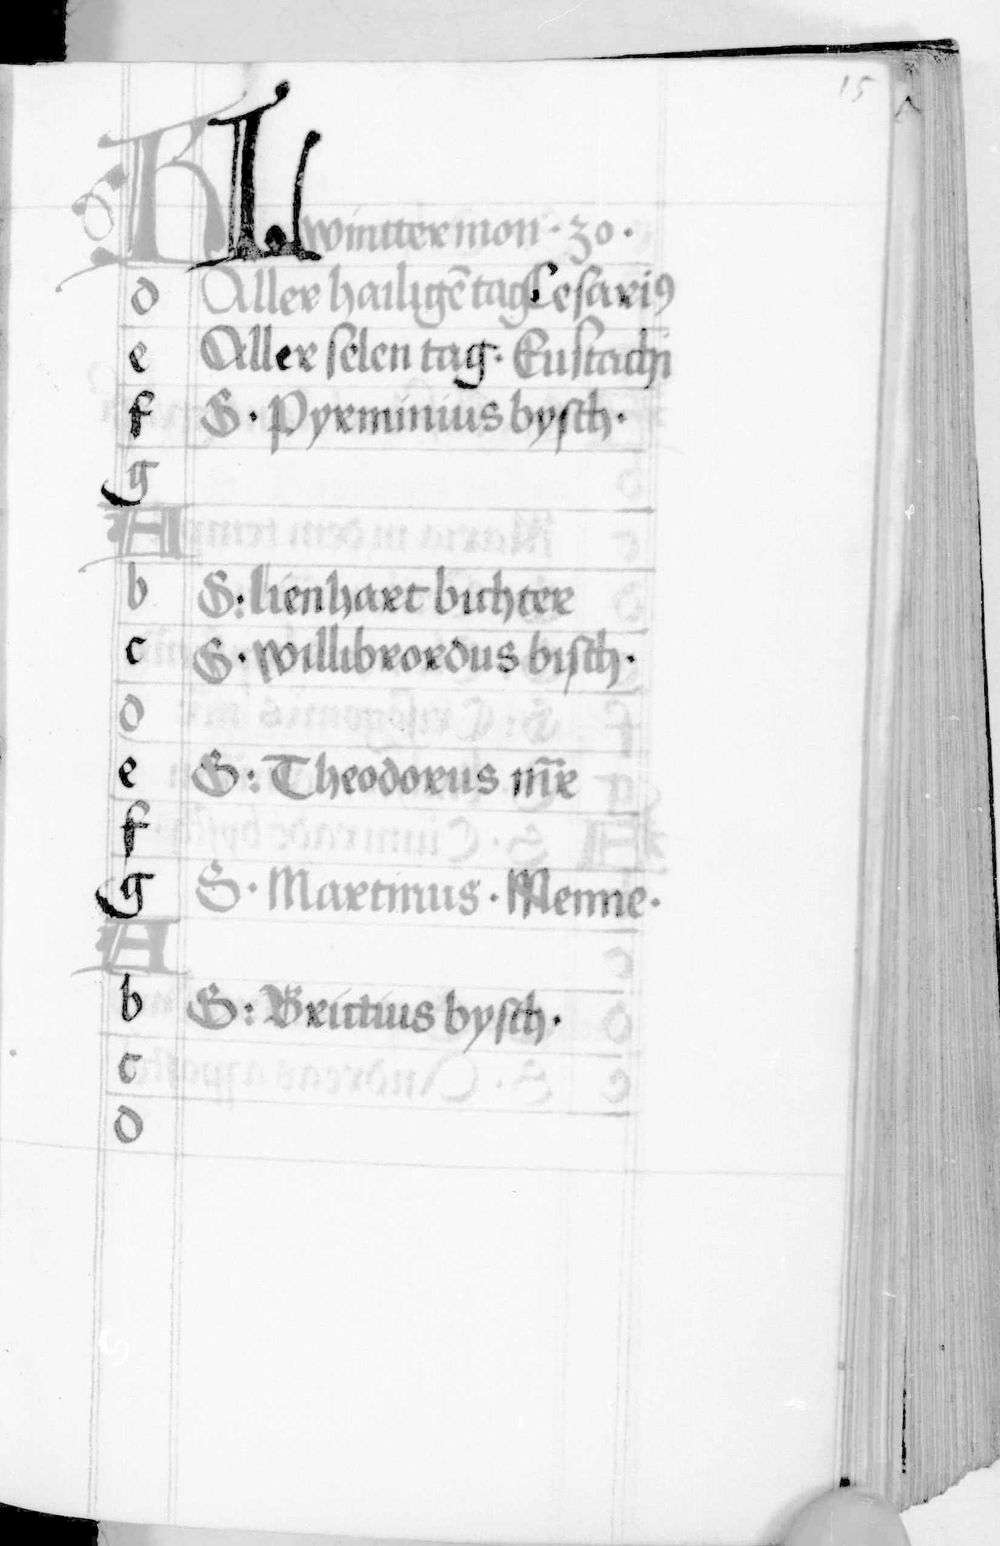 15
KL wintter mon · 30 ·
d Aller hailigē tag Cesariꝰ
e Aller selen tag · Eustachi
f S · Pyrminius bysch ·
g
A
b S : lienhart bichter
c S · Willibrordus bisch ·
d
e S : Theodorus mr̄
f
g S · Martinus · Menne ·
A
b S : Brictius bysch ·
c
d